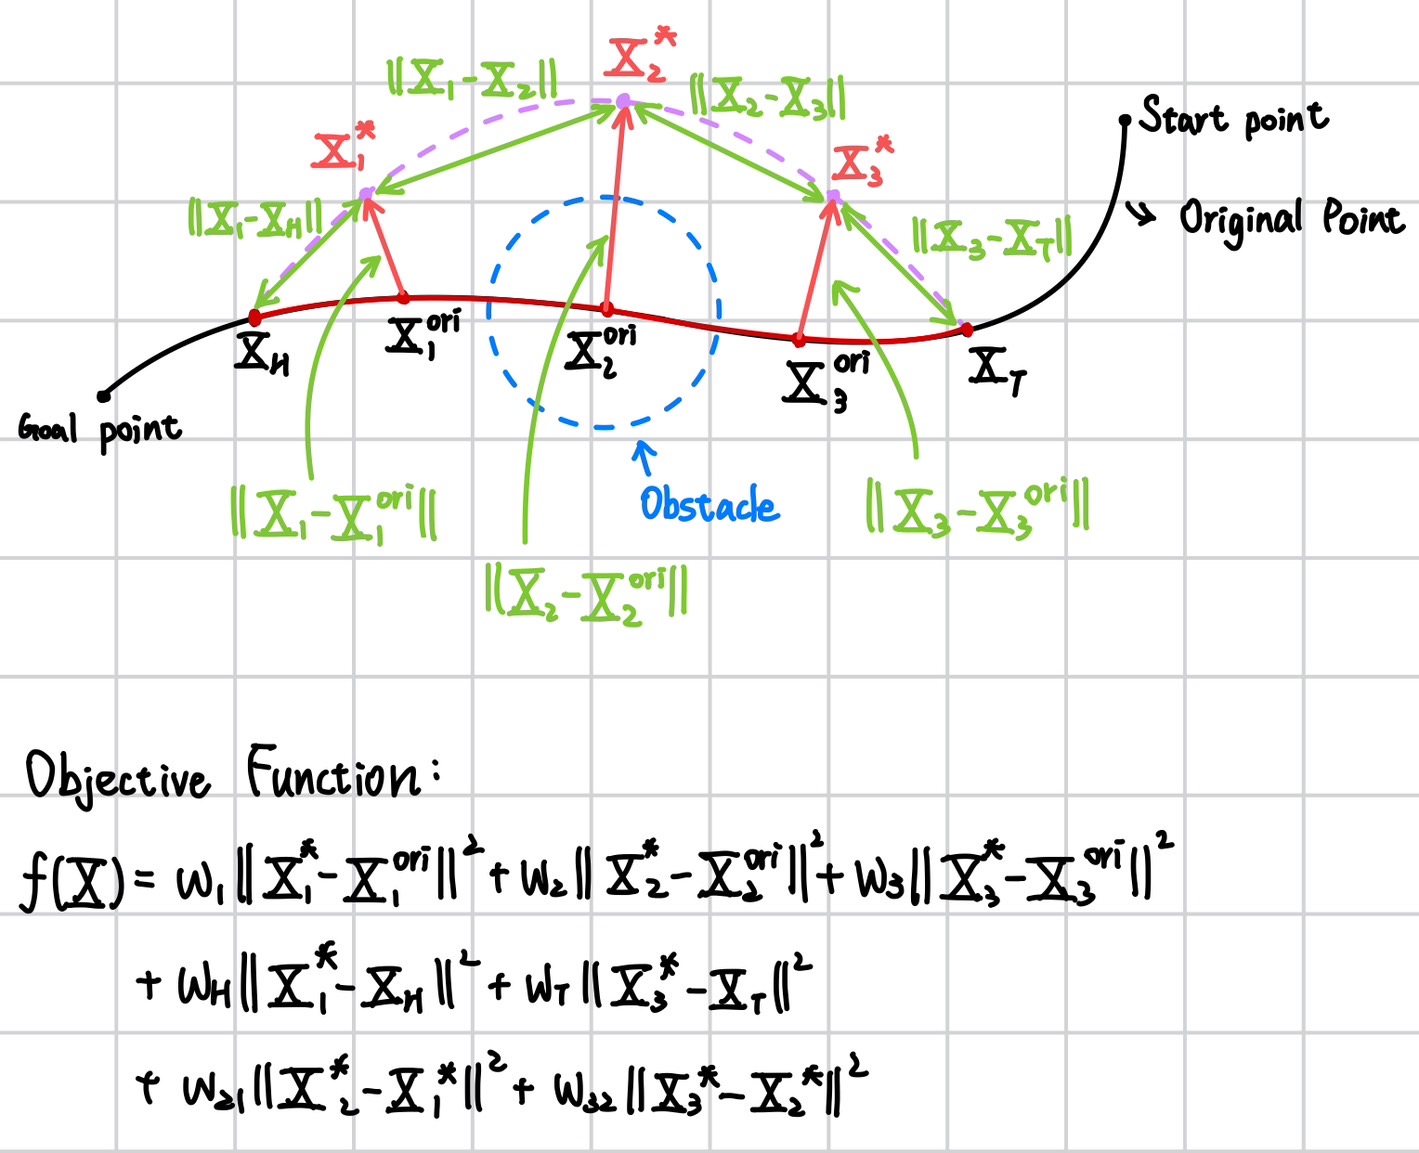 X₂*
||X₁-X₂||
||X₂-X₃||
Start point
X₁*
X₃*
||X₁-X_H||
||X₃-X_T||
Original Point
X_H
X₁^ori
X₂^ori
X₃^ori
X_T
Goal point
||X₁-X₁^ori||
Obstacle
||X₃-X₃^ori||
||X₂-X₂^ori||
Objective Function:
f(X) = w₁||X₁*-X₁^ori||² + w₂||X₂*-X₂^ori||² + w₃||X₃*-X₃^ori||²
+ w_H||X₁*-X_H||² + w_T||X₃*-X_T||²
+ w₂₁||X₂*-X₁*||² + w₃₂||X₃*-X₂*||²